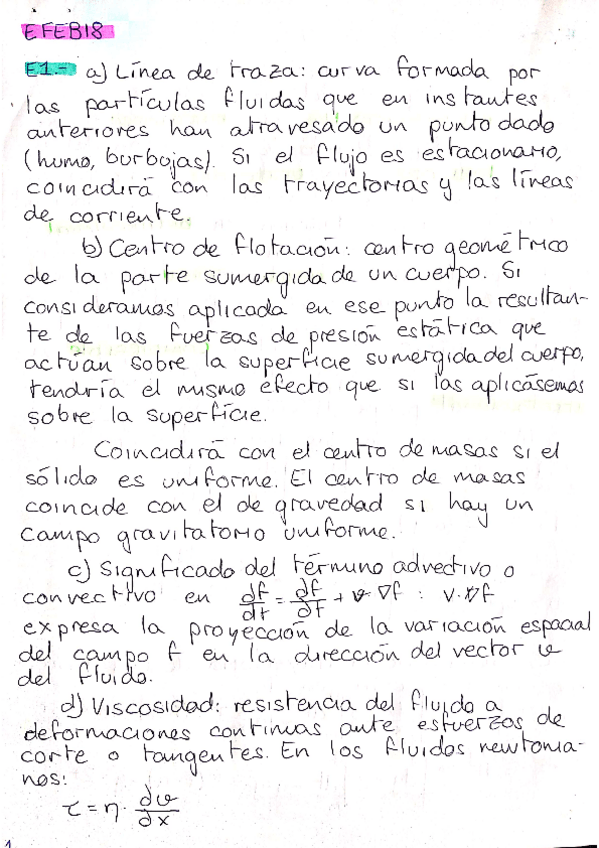 EFEB18
E1.- a) Línea de traza: curva formada por
las partículas fluidas que en instantes
anteriores han atravesado un punto dado
(humo, burbujas). Si el flujo es estacionario,
coincidirá con las trayectorias y las líneas
de corriente.
b) Centro de flotación: centro geométrico
de la parte sumergida de un cuerpo. Si
consideramos aplicada en ese punto la resultan-
te de las fuerzas de presión estática que
actúan sobre la superficie sumergida del cuerpo,
tendría el mismo efecto que si las aplicásemos
sobre la superficie.
Coincidirá con el centro de masas si el
sólido es uniforme. El centro de masas
coincide con el de gravedad si hay un
campo gravitatorio uniforme.
c) Significado del término advectivo o
convectivo en df/dt = ∂f/∂t + v·∇f : v·∇f
expresa la proyección de la variación espacial
del campo f en la dirección del vector v
del fluido.
d) Viscosidad: resistencia del fluido a
deformaciones continuas ante esfuerzos de
corte o tangentes. En los fluidos newtonia-
nos:
τ = η · ∂v/∂x
1